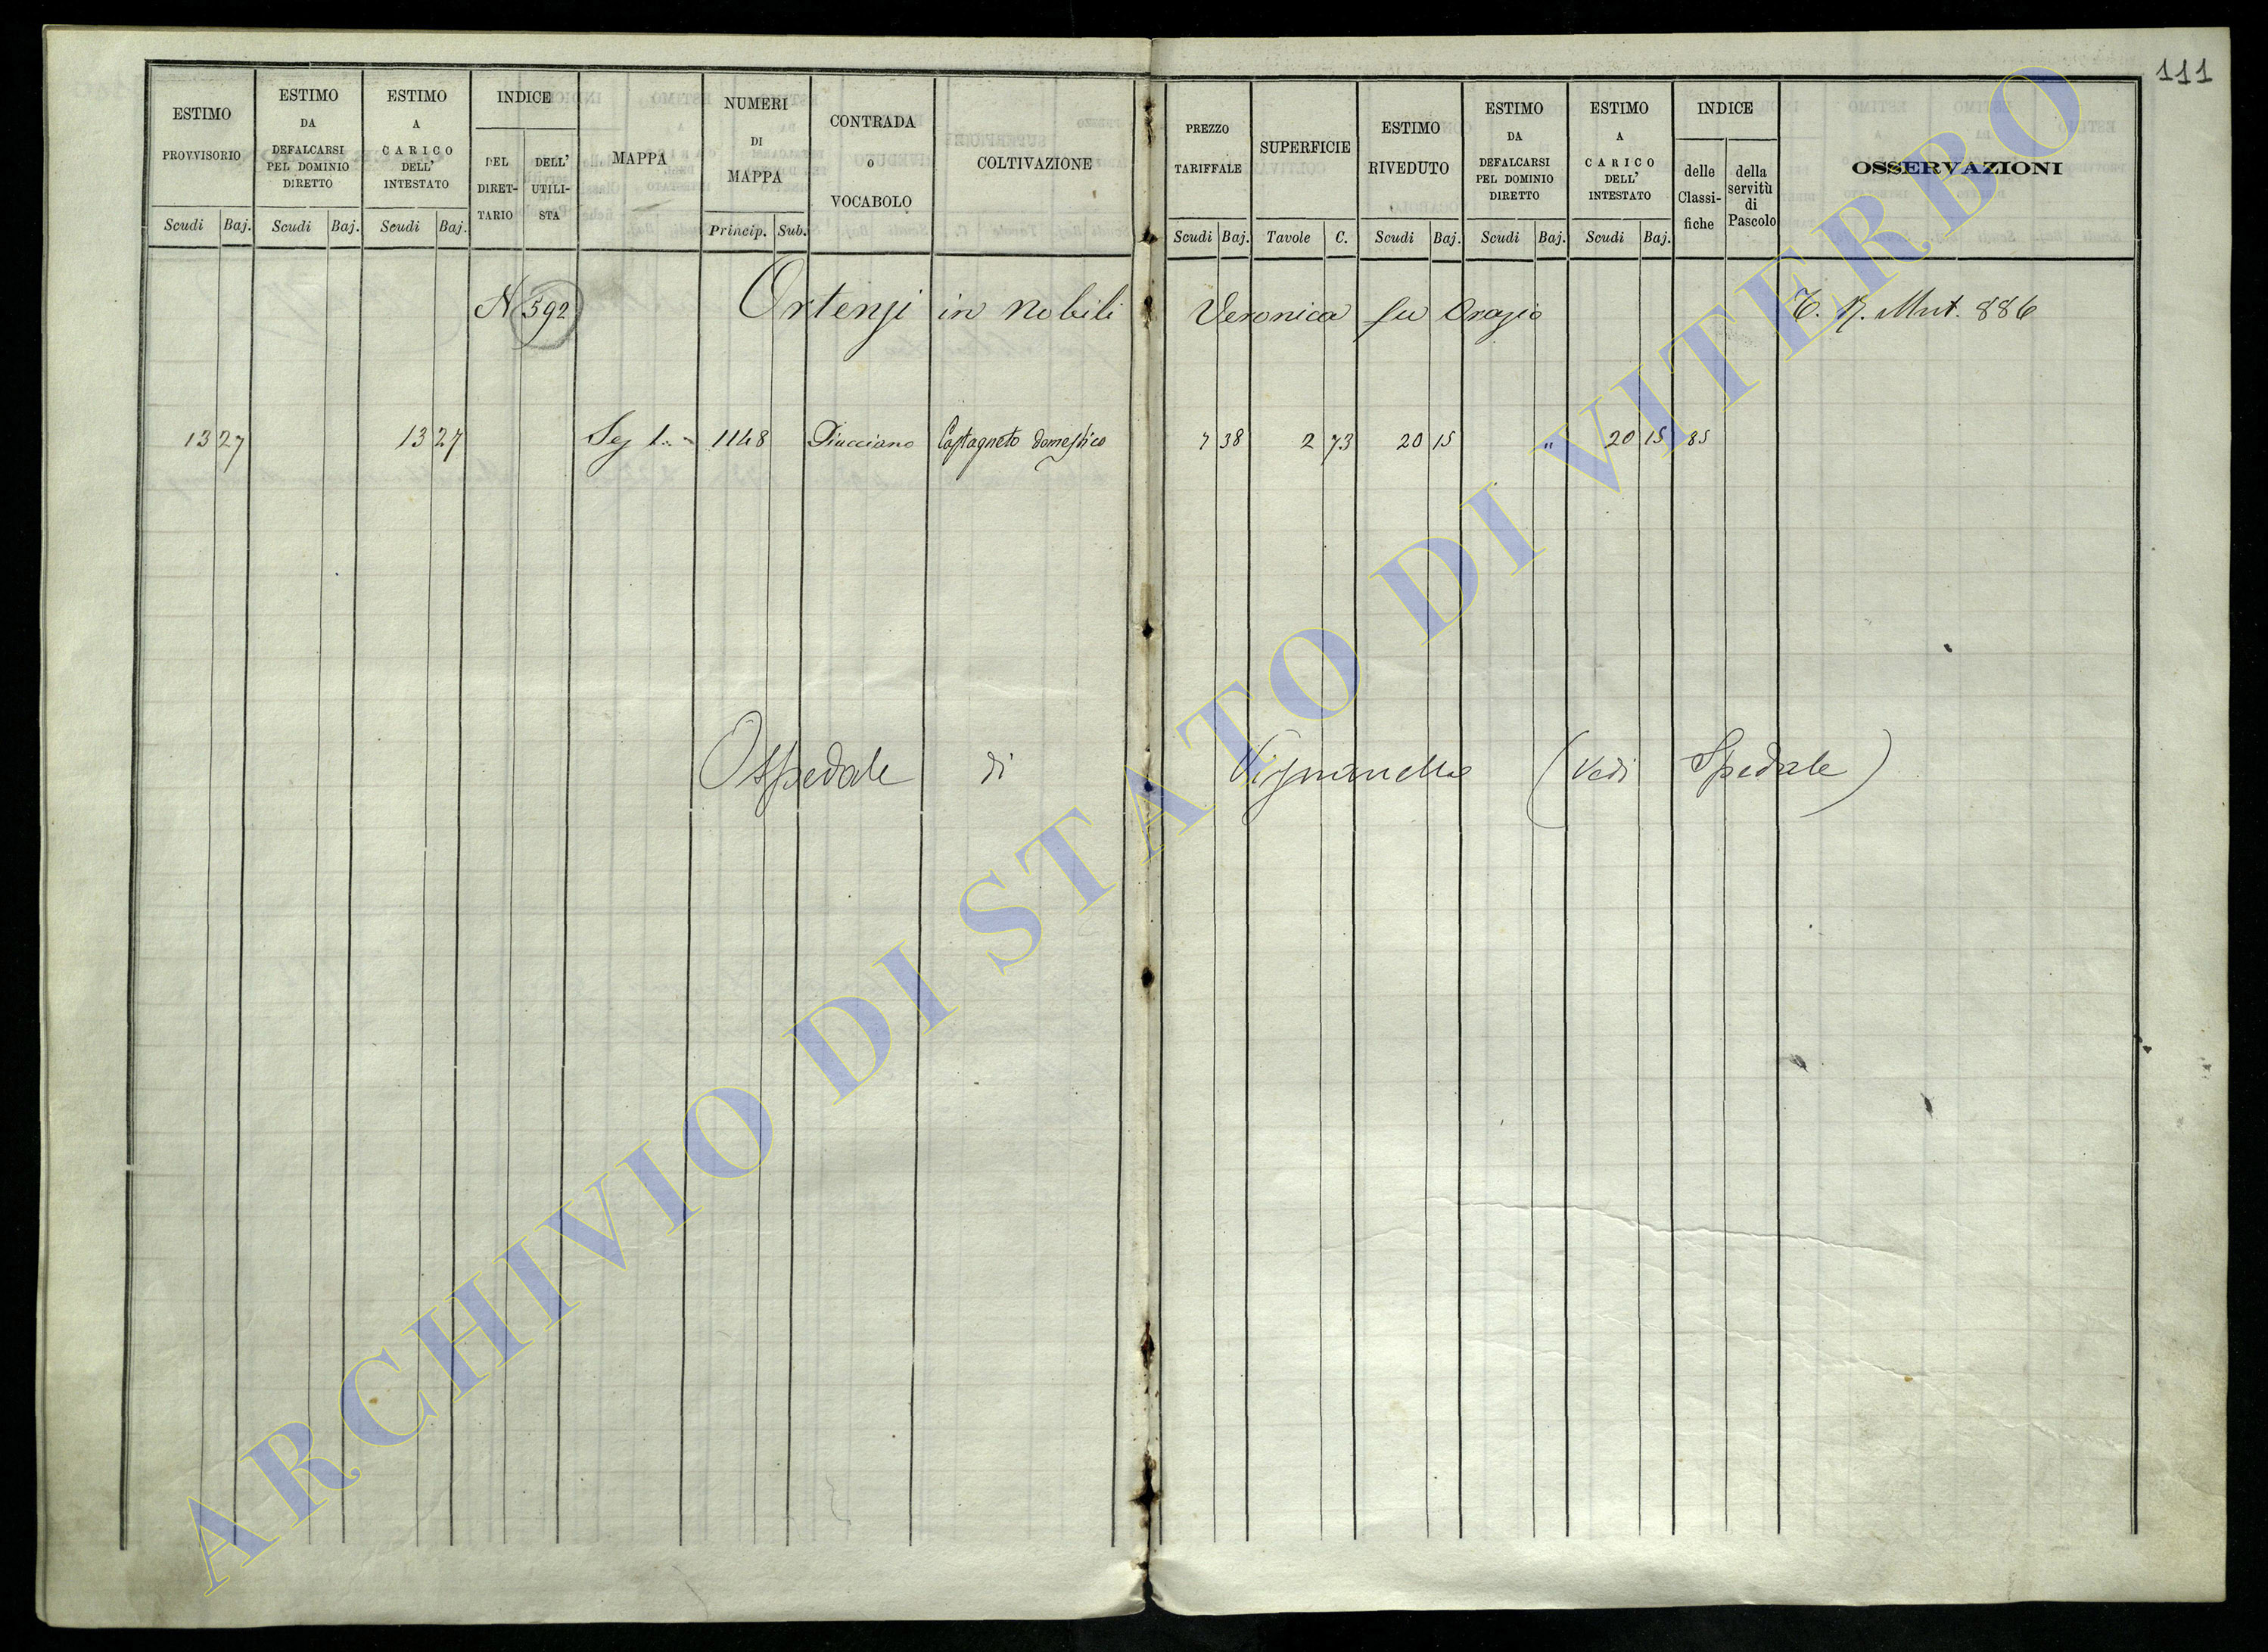 111
ESTIMO PROVVISORIO
Scudi Baj.
ESTIMO DA DEFALCARSI PEL DOMINIO DIRETTO
Scudi Baj.
ESTIMO A CARICO DELL' INTESTATO
Scudi Baj.
INDICE
DEL DIRET-TARIO
DELL' UTILI-STA
MAPPA
NUMERI DI MAPPA
Princip. Sub.
CONTRADA o VOCABOLO
COLTIVAZIONE
PREZZO TARIFFALE
Scudi Baj.
SUPERFICIE
Tavole C.
ESTIMO RIVEDUTO
Scudi Baj.
ESTIMO DA DEFALCARSI PEL DOMINIO DIRETTO
Scudi Baj.
ESTIMO A CARICO DELL' INTESTATO
Scudi Baj.
INDICE
delle Classi-fiche
della servitù di Pascolo
OSSERVAZIONI
N 592 Ortenzi in Nobili Veronica fu Orazio T. N. Mut. 886
13 27 13 27 Sez 1.a 1148 Piucciano Castagneto domestico 7 38 2 73 20 15 " 20 15 85
Ospedale di Vignanello (Vedi Spedale)
ARCHIVIO DI STATO DI VITERBO